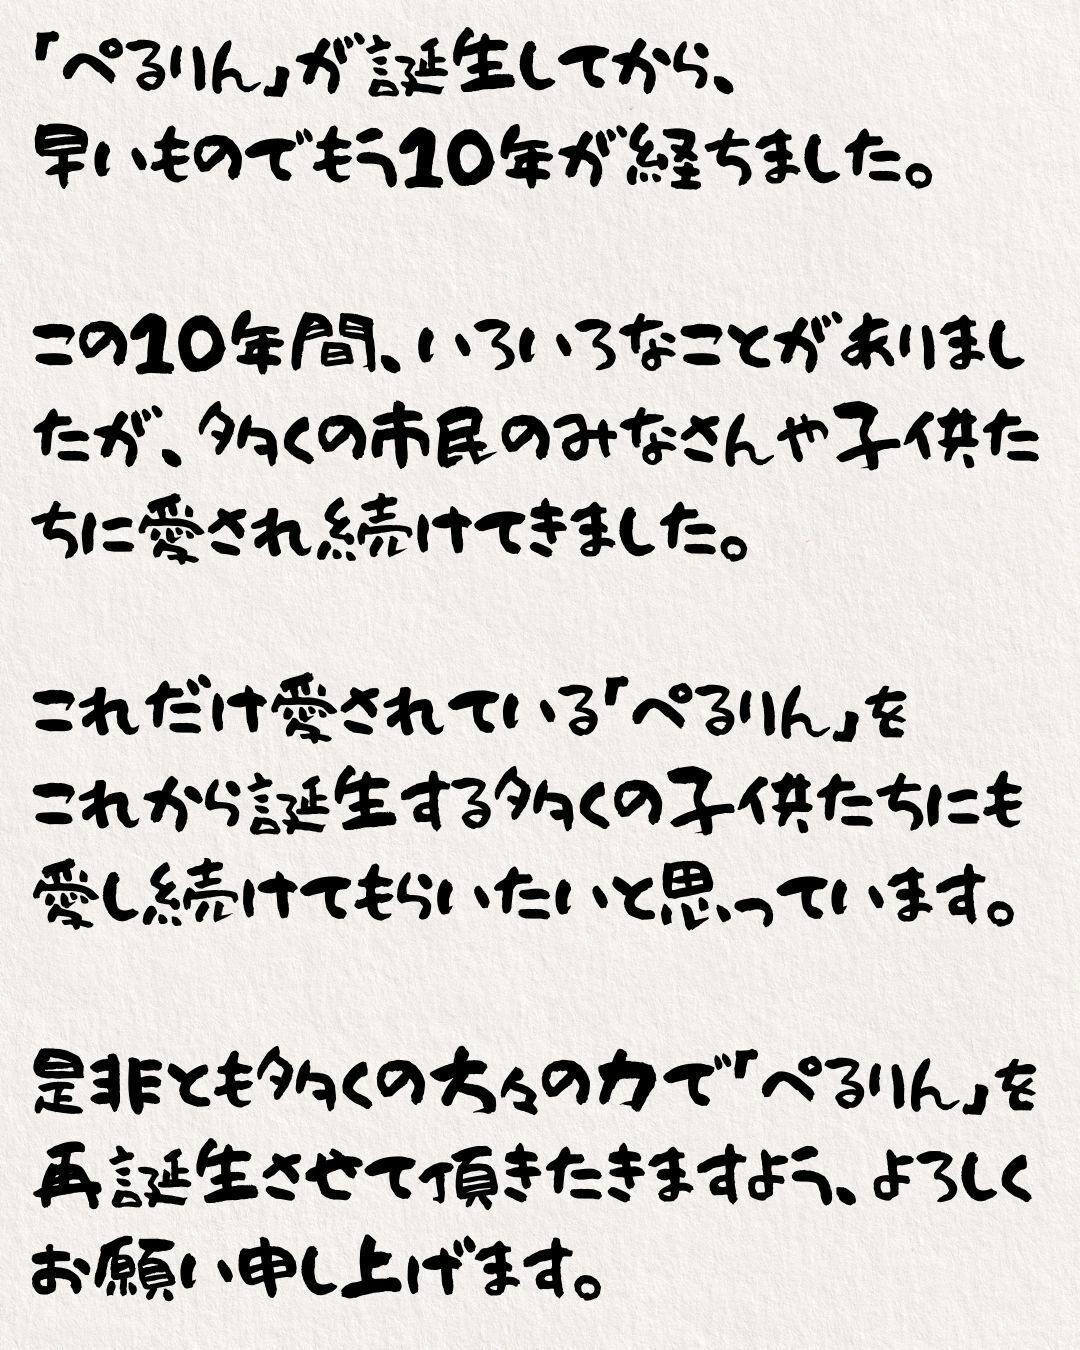 「ぺるりん」が誕生してから、
早いものでもう10年が経ちました。
この10年間、いろいろなことがありまし
たが、多くの市民のみなさんや子供た
ちに愛され続けてきました。
これだけ愛されている「ぺるりん」を
これから誕生する多くの子供たちにも
愛し続けてもらいたいと思っています。
是非とも多くの方々の力で「ぺるりん」を
再誕生させて頂きたきますよう、よろしく
お願い申し上げます。